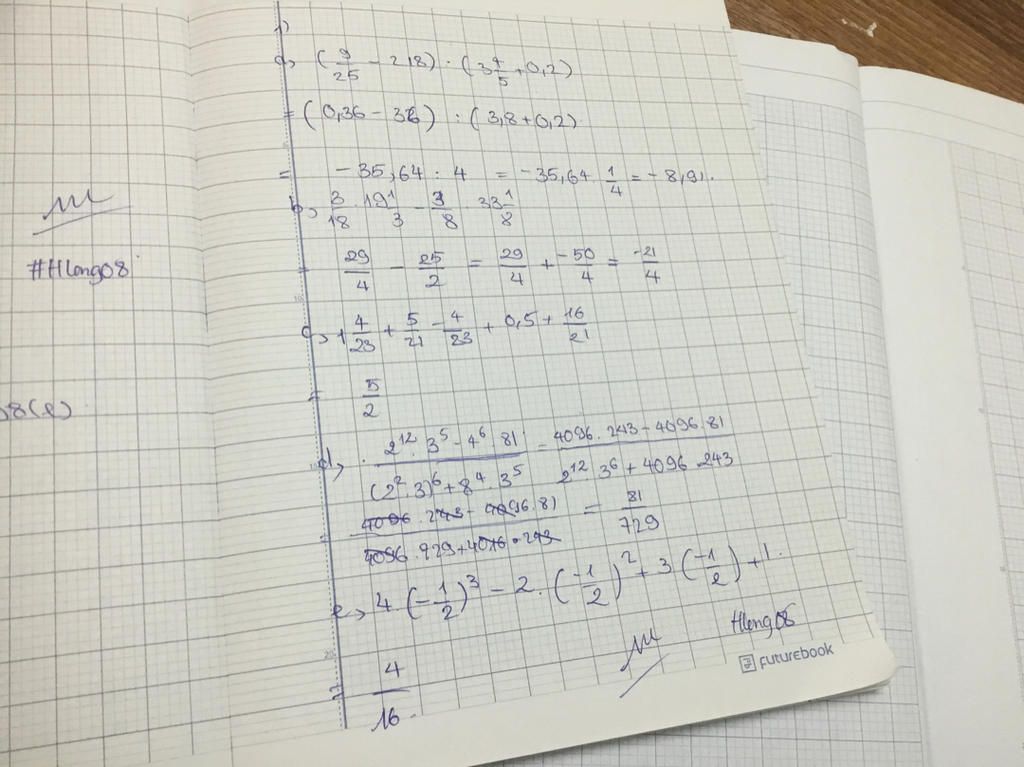 1)
a, (9/25 - 2,18) : (3 4/5 + 0,2)
= (0,36 - 36) : (3,8 + 0,2)
= -35,64 : 4 = -35,64 . 1/4 = -8,91.
b, 3/18 . 19 1/3 - 3/8 . 33 1/8
= 29/4 - 25/2 = 29/4 + -50/4 = -21/4
#HLong08
c, 1 4/23 + 5/21 - 4/23 + 0,5 + 16/21
= 5/2
08(l)
d, 2^12 . 3^5 - 4^6 . 81 / (2^2 . 3)^6 + 8^4 . 3^5 = 4096 . 243 - 4096 . 81 / 2^12 . 3^6 + 4096 . 243
= 4096 . 243 - 4096 . 81 / 4096 . 929 + 4096 . 243 = 81/729
e, 4 . (-1/2)^3 - 2 . (-1/2)^2 + 3 (-1/2) + 1.
= 4/16.
HLong08
futurebook